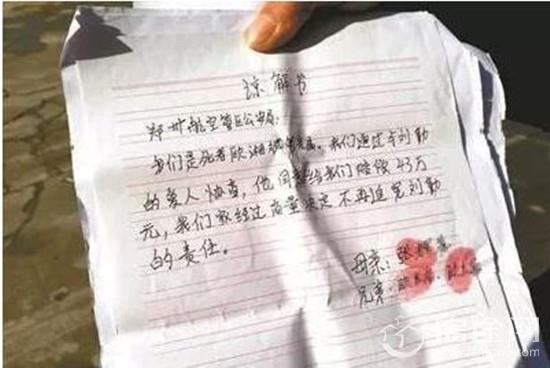 谅解书
郑州航空管区公安局:
我们是死者欧湘 家属,我们通过与刘勤
的爱人协商,他同意给我们赔偿43万
元,我们家经过商量决定不再追究刘勤
的责任。
母亲:张
兄弟: